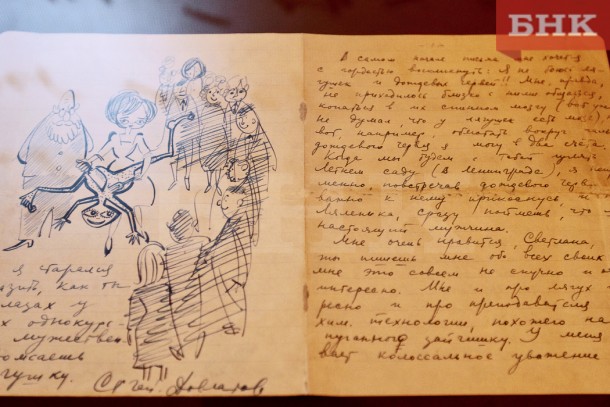 БНК
я старался
азить, как ты
глазах у
х однокур-
мужествен
омсаешь
гушку.
Сергей Довлатов
В самом начале письма мне хочется
с гордостью воскликнуть: Я не боюсь ля-
гушек и дождевых червей!! Мне, правда,
не приходилось близко с ними общаться,
копаться в их спинном мозгу (вот уж
не думал, что у лягушек есть мозг), но
вот, например, обмотать вокруг пальца
дождевого червя я могу в два счёта.
Когда мы будем с тобой гулять в
Летнем саду (в Ленинграде), я
менно, повстречав дождевого червя
важно к нему прикоснусь, и
Лялинька, сразу поймешь, что
настоящий мужчина.
Мне очень нравится, Светлана,
ты пишешь мне обо всех своих
мне это совсем не скучно и
интересно. Мне и про лягух
ресно и про преподавателя
хим. технологии, похожего на
пуганного зайчишку. У меня
вает колоссальное уважение